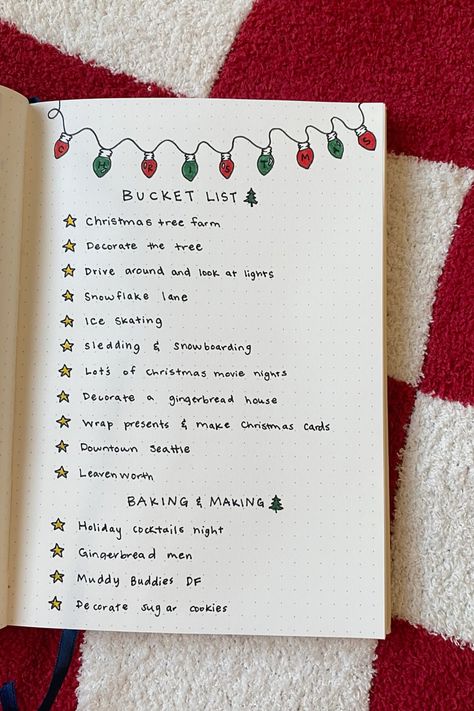 CHRISTMAS
BUCKET LIST
Christmas tree farm
Decorate the tree
Drive around and look at lights
Snowflake lane
Ice skating
sledding & snowboarding
Lot's of christmas movie nights
Decorate a gingerbread house
Wrap presents & make Christmas cards
Downtown Seattle
Leavenworth
BAKING & MAKING
Holiday cocktails night
Gingerbread men
Muddy Buddies DF
Decorate sugar cookies